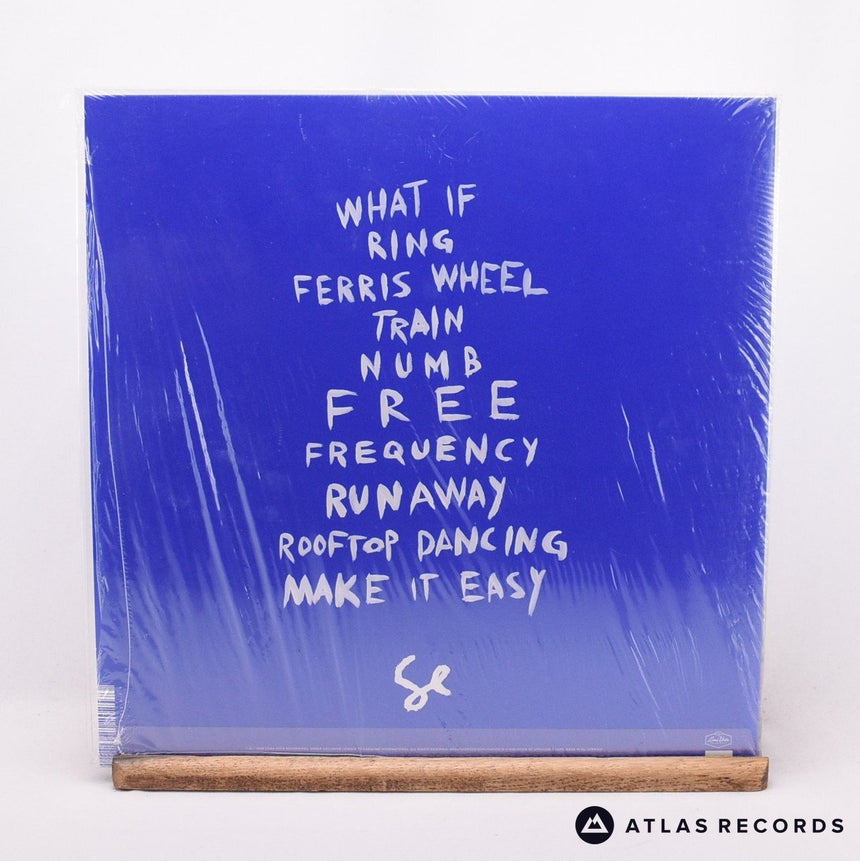 WHAT IF
RING
FERRIS WHEEL
TRAIN
NUMB
FREE
FREQUENCY
RUNAWAY
ROOFTOP DANCING
MAKE IT EASY
Se
ATLAS RECORDS